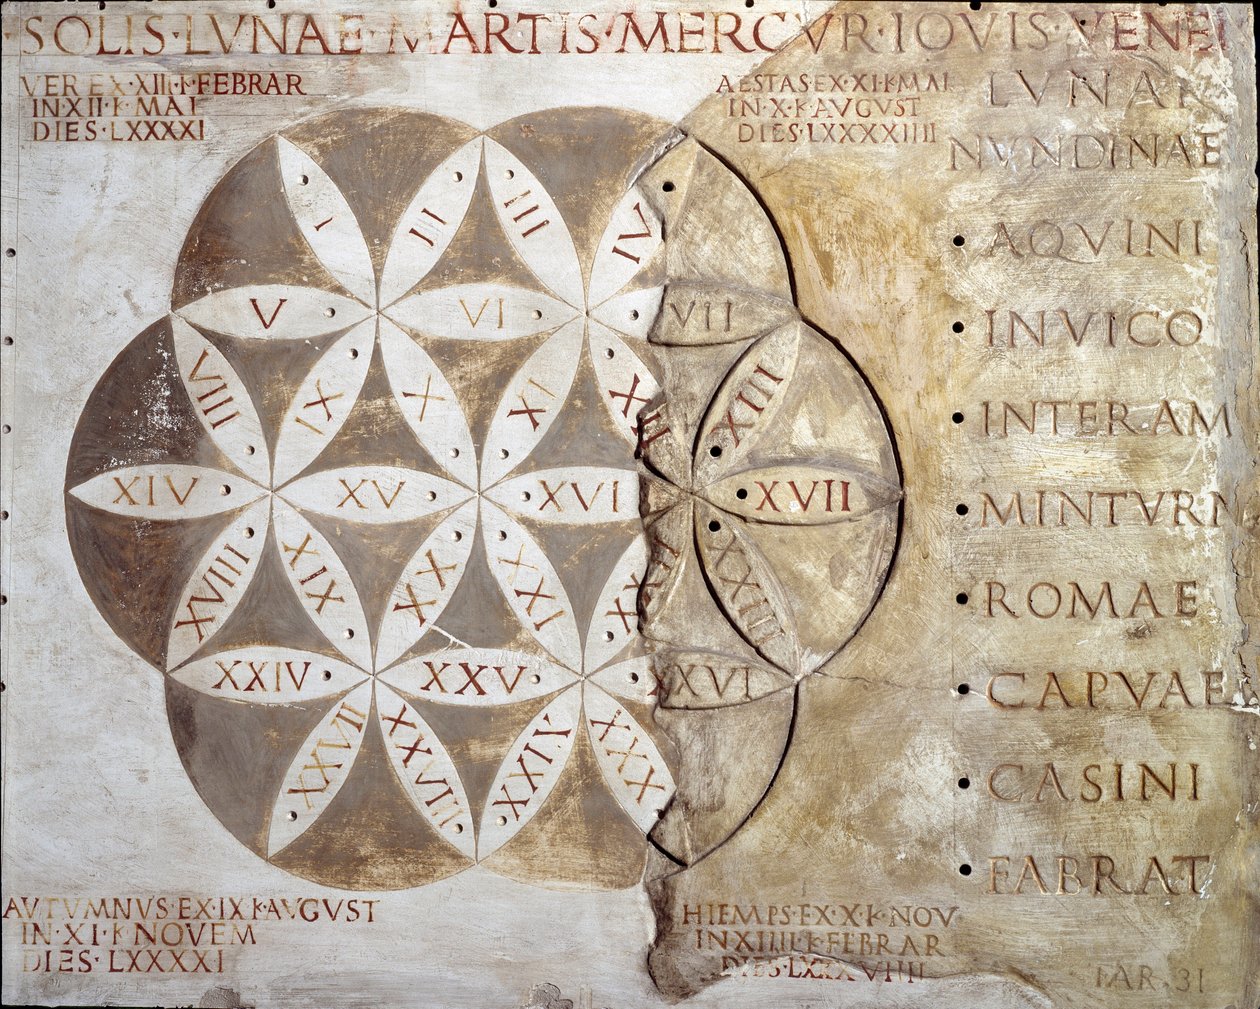 SOLIS·LVNAE·MARTIS·MERCVR·IOVIS·VENE
VER EX·XIII·K·FEBRAR
IN XII·K·MAI
DIES·LXXXXI
AESTAS·EX·XI·K·MAI
IN·X·K·AVGUST
DIES·LXXXXIIII
LVNAR
NVNDINAE
AQVINI
IN VICO
INTERAM
MINTVRN
ROMAE
CAPVAE
CASINI
FABRAT
I II III IV
V VI VII
VIII IX X XI XII XIII
XIV XV XVI XVII
XVIII XIX XX XXI XXIII
XXIV XXV XXVI
XXVII XXVIII XXIX XXX
AVTUMNVS·EX·IX·K·AVGUST
IN·XI·K·NOVEM
DIES·LXXXXI
HIEMPS·EX·X·K·NOV
IN XIIII·K·FEBRAR
DIES·LXXXVIIII
IAR. 31